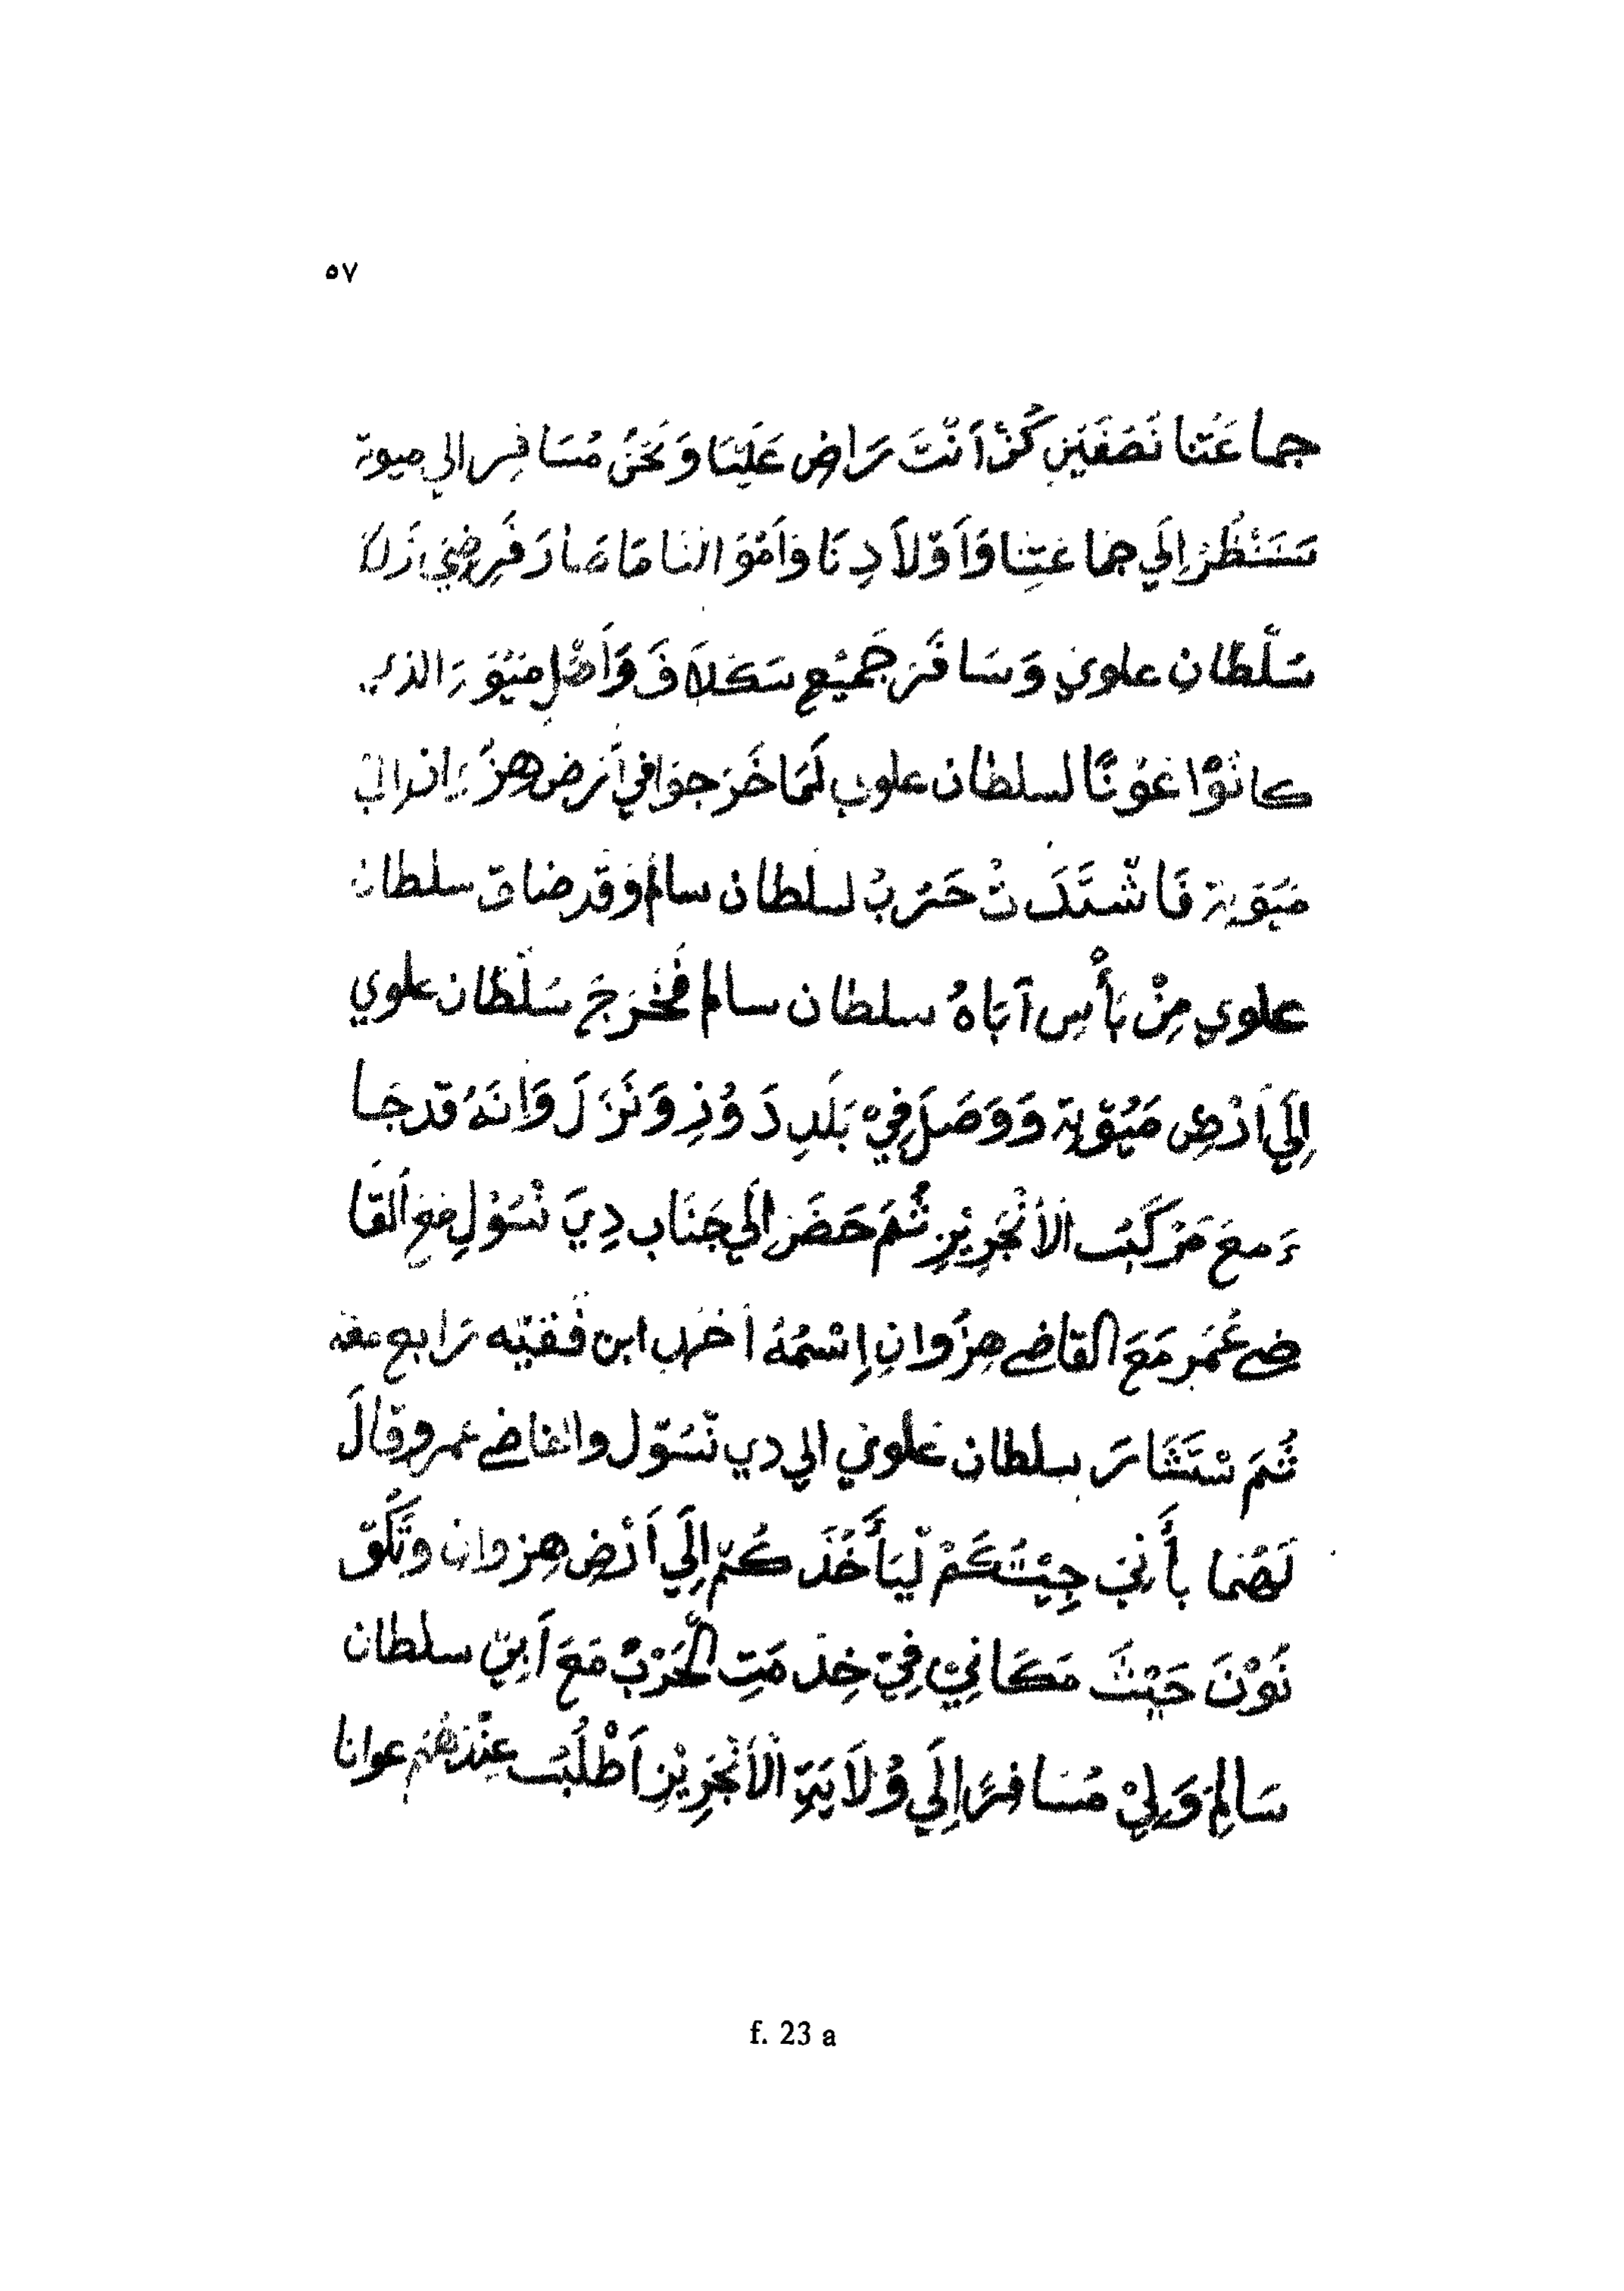 ٥٧
جما عَتنا نَصَفَيْنِ كُنْ اَنْتَ رَاضِ عَلَيْنَا وَنَحْنُ مُسَافِر الي ميوتة
سَنَنْظُرُ اِلَي جَمَا عَتِنَا وَاَوْلاَدِنَا وَاَمْوَالنَا مَا صَارَ فَرِضِيَ ذَلك
سُلْطَان علوي وَسَا فَرَ جَمِيْع سَكَلاَفَ وَاَهْلِ مَيْوَ الذي
كانُوْا عَوْنًا لسلطان علوي لَمَا خَرَجوَا فِي اَرْض هِزْوَان اِلي
مَيَوتة فَا شْتَدَّتْ حَرْبُ لسلطان سالم وَقد ضاق سلطان
علوي مِنْ بَأْسِ اَبَاهُ سلطان سالم فَخْرَجَ سَلْطَان علوي
اِلَي اَرْضِ مَيُوْتة وَوَصَلَ فِيْ بَلَدِ دَوُنِ وَنَزَلَ وَاِنَهُ قدجَا
ءَ معَ مَرْكَبُ الاَنْجَرِيْزِ ثُمَ حَضَرَ اِلَي جَنَاب دِيَ نْسُوْلِ مَعَ اَلقَا
ضِے عُمَر مَعَ القاضِے هِزْوَانِ اِسْمُهُ اَحْمَد ابن فَقيْه رَابع معَه
ثُمَ سْتَشَارَ سلطان علوي الي دي نْسُوْل والقاضِے عمر وقَالَ
لَهُمَا بأَنِيَ جِيْتُكُمْ لِيَأَخُذَ كُمْ اِلَي اَرْضِ هِزوان وتَكُوْ
نَوْنَ حَيْثَ مَكَانِيْ فِيْ خِدْ مَتِ الْحَرْبُ مَعَ اَبِيْ سلطان
سَالِمْ وَلِيْ مُسَافِرًا اِلَي وُلاَيَةِ الْاَنْجَرِيْزِ اَطْلُبُ عِنْدَهُمْ عوانا
f. 23 a